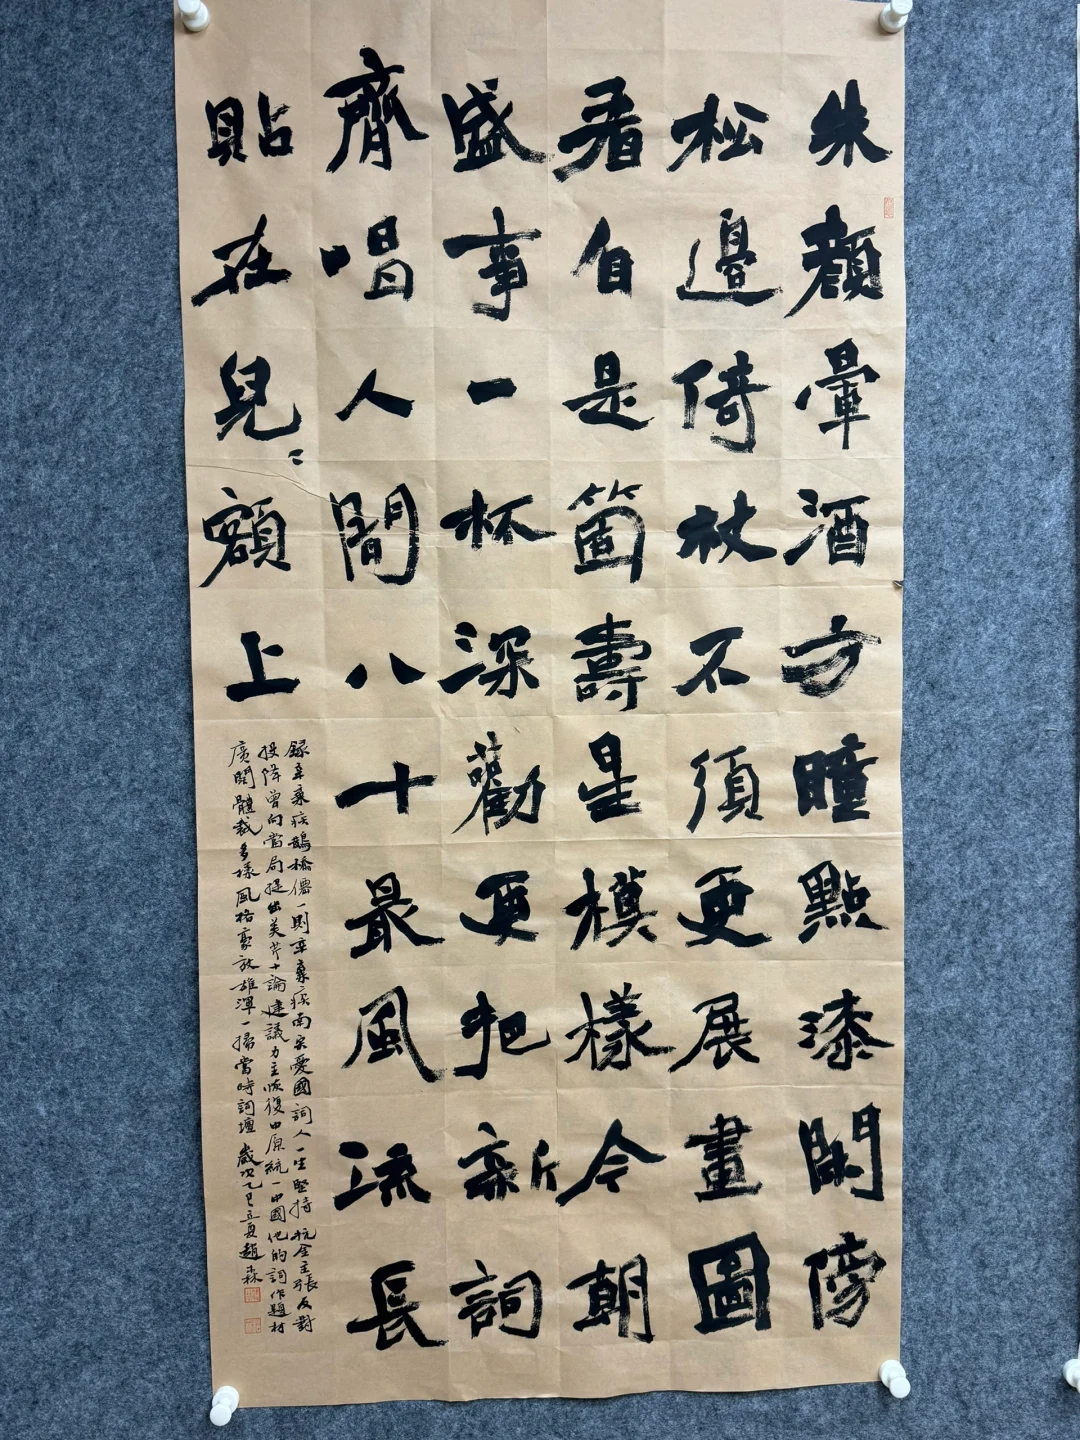 朱顏暈酒方瞳點漆閑傍
松邊倚杖不須更展畫圖
看自是箇壽星模樣今朝
盛事一杯深勸更把新詞
齊唱人間八十最風流長
貼在兒〻額上
錄辛棄疾鵲橋僊一則辛棄疾南宋愛國詞人一生堅持抗金主張反對
投降曾向當局提出美芹十論建議力主恢復中原統一中國他的詞作題材
廣闊體裁多樣風格豪放雄渾一掃當時詞壇歲次乙巳立夏趙森